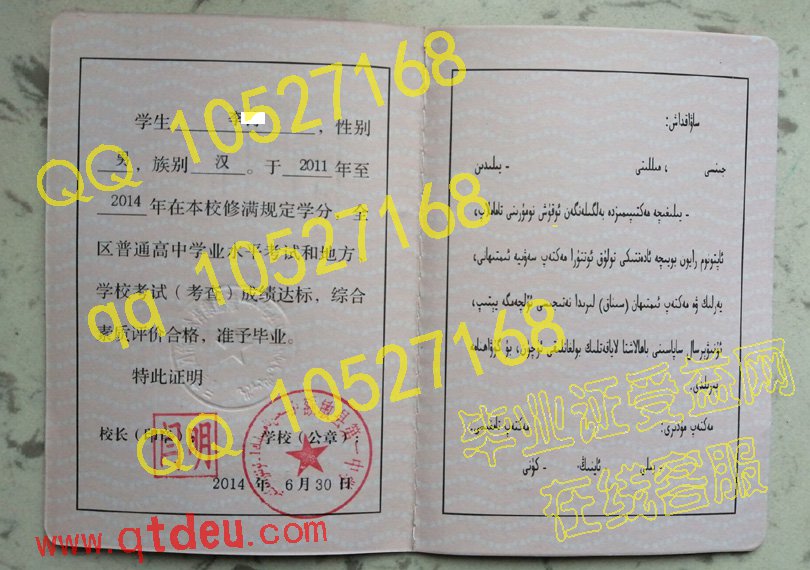 学生 李 ，性别
男 ，族别 汉 。于 2011 年至
2014 年在本校修满规定学分，全
区普通高中学业水平考试和地方、
学校考试（考查）成绩达标，综合
素质评价合格，准予毕业。
特此证明
校长（印 学校（公章）：
2014 年 6 月 30 日
ساۋاقداش:
جىنسى ، مىللىتى - يىلىدىن
- يىلىغىچە مەكتىپىمىزدە بەلگىلەنگەن ئوقۇش نومۇرىنى تاماملاپ،
ئاپتونوم رايون بويىچە ئادەتتىكى تولۇق ئوتتۇرا مەكتەپ سەۋىيە ئىمتىھانى،
يەرلىك ۋە مەكتەپ ئىمتىھان (سىناق) لىرىدا نەتىجىسى ئۆلچەمگە يېتىپ،
ئۇنىۋېرسال ساپاسىنى باھالاشتا لاياقەتلىك بولغانلىقى ئۈچۈن، بۇ گۇۋاھنامە
بېرىلدى.
مەكتەپ مۇدىرى: مەكتەپ تامغىسى:
- يىلى - ئاينىڭ - كۈنى
QQ 10527168
qq 10527168
QQ 10527168
毕业证受益网
在线客服
www.qtdeu.com